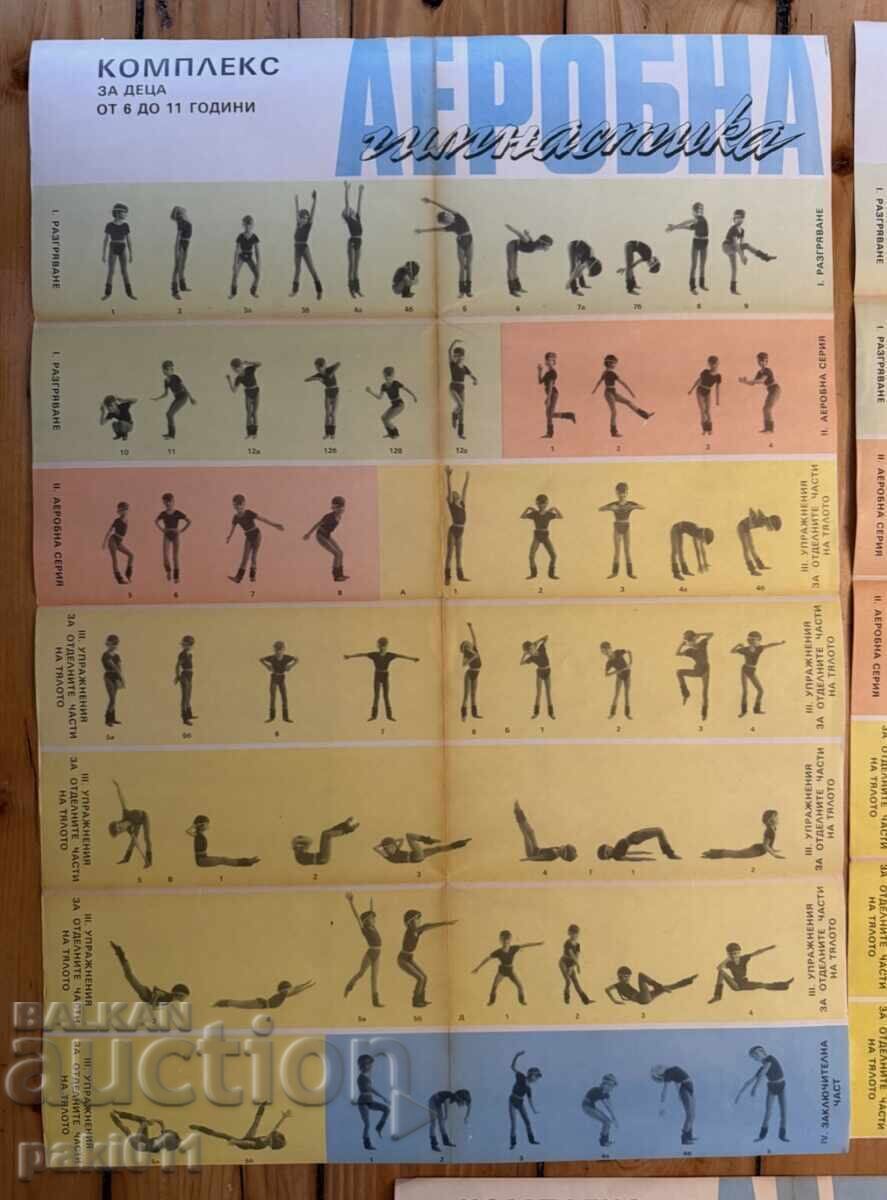 КОМПЛЕКС
ЗА ДЕЦА
ОТ 6 ДО 11 ГОДИНИ
АЕРОБНА
гимнастика
I. РАЗГРЯВАНЕ
1 2 3а 3б 4а 4б 5 6 7а 7б 8 9
I. РАЗГРЯВАНЕ
I. РАЗГРЯВАНЕ
10 11 12а 12б 12в 12г
1 2 3 4
II. АЕРОБНА СЕРИЯ
II. АЕРОБНА СЕРИЯ
5 6 7 8
А 1 2 3 4а 4б
III. УПРАЖНЕНИЯ
ЗА ОТДЕЛНИТЕ ЧАСТИ
НА ТЯЛОТО
III. УПРАЖНЕНИЯ
ЗА ОТДЕЛНИТЕ ЧАСТИ
НА ТЯЛОТО
5а 5б 6 7 8 Б 1 2 3 4
III. УПРАЖНЕНИЯ
ЗА ОТДЕЛНИТЕ ЧАСТИ
НА ТЯЛОТО
III. УПРАЖНЕНИЯ
ЗА ОТДЕЛНИТЕ ЧАСТИ
НА ТЯЛОТО
5 В 1 2 3 4 Г 1 2
III. УПРАЖНЕНИЯ
ЗА ОТДЕЛНИТЕ ЧАСТИ
НА ТЯЛОТО
III. УПРАЖНЕНИЯ
ЗА ОТДЕЛНИТЕ ЧАСТИ
НА ТЯЛОТО
5а 5б Д 1 2 3 4
III. УПРАЖНЕНИЯ
ЗА ОТДЕЛНИТЕ ЧАСТИ
НА ТЯЛОТО
III. УПРАЖНЕНИЯ
ЗА ОТДЕЛНИТЕ ЧАСТИ
НА ТЯЛОТО
1 2 3 4а 4б 5
IV. ЗАКЛЮЧИТЕЛНА
ЧАСТ
BALKAN
auction
paki011
I. РАЗГРЯВАНЕ
I. РАЗГРЯВАНЕ
II. АЕРОБНА СЕРИЯ
II. АЕРОБНА СЕРИЯ
III. УПРАЖНЕНИЯ
ЗА ОТДЕЛНИТЕ ЧАСТИ
НА ТЯЛОТО
ЗА ОТДЕЛНИТЕ ЧАСТИ
НА ТЯЛОТО
ЗА ОТДЕЛНИТЕ ЧАСТИ
НА ТЯЛОТО